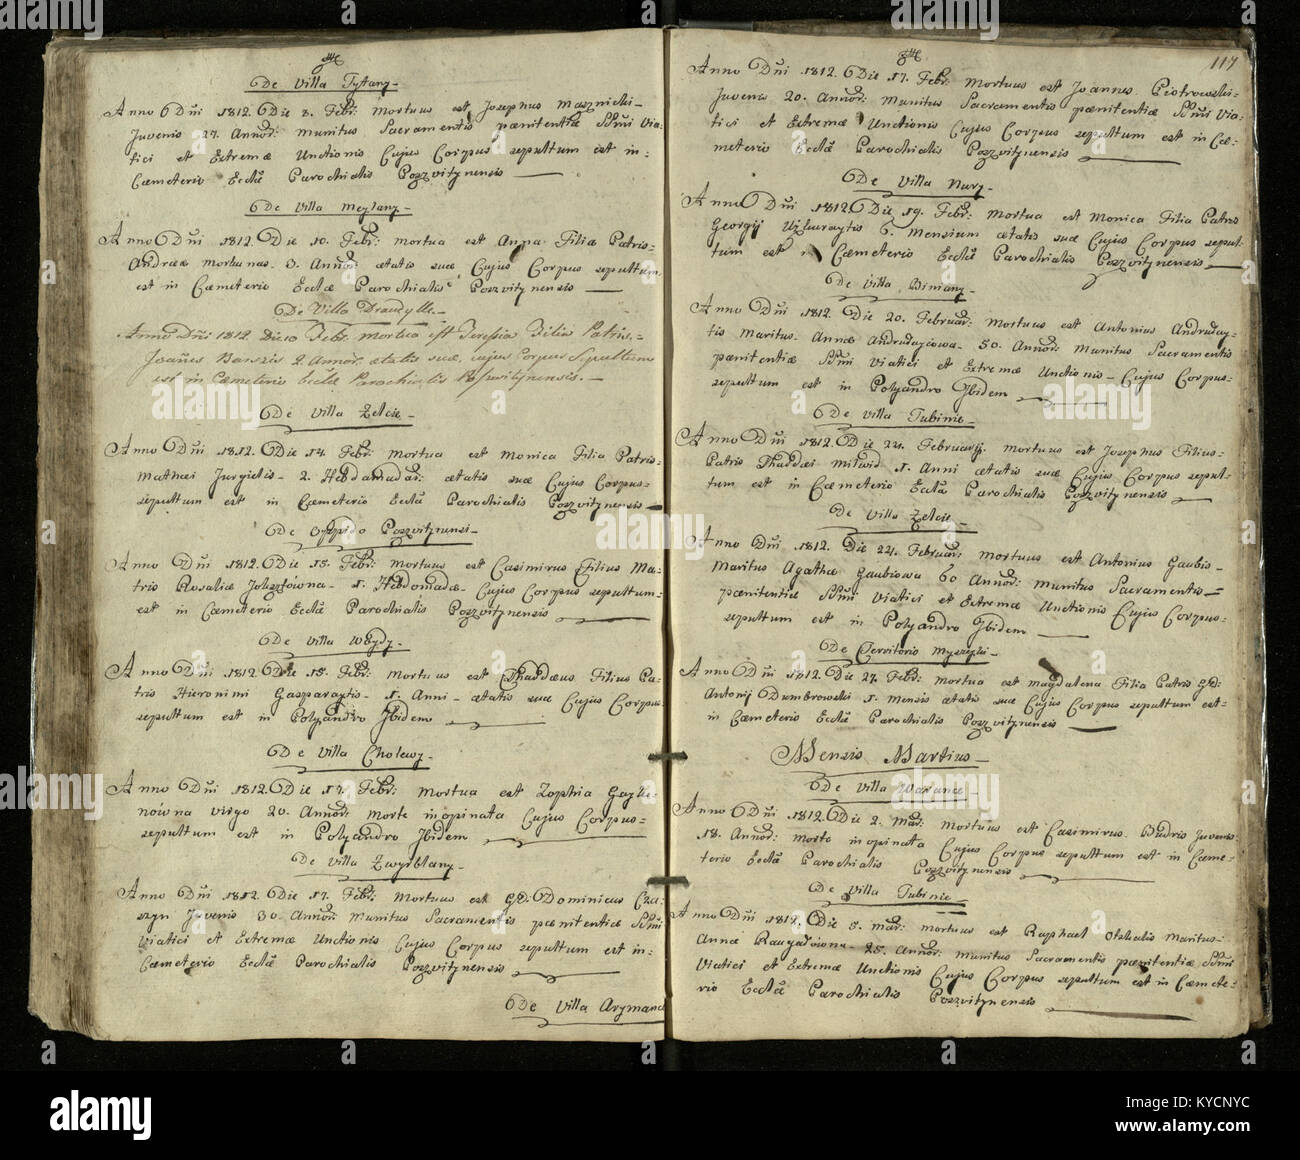 De Villa Tyttany
Anno Dñi 1812. Die 8. Febr: Mortuus est Josephus Masznicki
Juvenis 27. Annor: munitus Sacramentis pænitentiæ SSmi Via:
tici et Extremæ Unctionis Cujus Corpus sepultum est in:
Cæmeterio Ecclæ Parochialis Poszvitynensis
De Villa Meylany
Anno Dñi 1812. Die 10. Febr: mortua est Anna Filia Patris
Andreæ 3. Annor ætatis suæ, Cujus Corpus sepultum
est in Cæmeterio Ecclæ Parochialis Poszvitynensis
De Villa Draudylle
Anno Dñi 1812 Die 10 Febr. mortua est Teresia Filia Patris
Joañes 2 Annor ætatis suæ, cujus Corpus Sepultum
est in Cæmeterio Ecclæ Parochialis Poszvitynensis.
De Villa Zelcie
Anno Dñi 1812. Die 14. Febr: mortua est Monica Filia Patris
Mathæi Jurgielis 2. Hebdamadar: ætatis suæ Cujus Corpus
sepultum est in Cæmeterio Ecclæ Parochialis Poszvitynensis
De Oppido Poszvitynensi
Anno Dñi 1812. Die 15. Febr: mortuus est Casimirus Filius Ma:
tris Rosaliæ 1. Hebdomadæ Cujus Corpus sepultum
est in Cæmeterio Ecclæ Parochialis Poszvitynensis
De Villa
Anno Dñi 1812 Die 15. Febr: Mortuus est Thaddæus Filius Pa:
tris Hieronimi Gasparaytis 1. Anni ætatis suæ Cujus Corpus
sepultum est in Polyandro Ibidem
De Villa Cholewy
Anno Dñi 1812. Die 17. Febr: Mortua est Zophia
nówna virgo 20. Annor: morte inopinata Cujus Corpus
sepultum est in Polyandro Ibidem
De Villa Zwyrblany
Anno Dñi 1812 Die 17. Febr: Mortuus est GD: Dominicus Cza:
szyn Juvenis 30 Annor: munitus Sacramentis pænitentiæ SSmi
Viatici et Extremæ Unctionis Cujus Corpus sepultum est in:
Cæmeterio Ecclæ Parochialis Poszvitynensis
De Villa Arymance
117
Anno Dñi 1812. Die 17. Febr: Mortuus est Joannus Piotrowski
Juvenis 20. Annor: munitus Sacramentis pænitentiæ SSmi Via:
tici et Extremæ Unctionis Cujus Corpus sepultum est in Cæ:
meterio Ecclæ Parochialis Poszvitynensis
De Villa Nury
Anno Dñi 1812. Die 19. Febr: Mortua est Monica Filia Patris
Georgij 6. Mensium ætatis suæ Cujus Corpus sepul:
tum est in Cæmeterio Ecclæ Parochialis Poszvitynensis
De Villa Biniany
Anno Dñi 1812. Die 20. Februar: Mortuus est Antonius Andruday:
tis Maritus Annæ Andrudayciowa 50. Annor: Munitus Sacramentis
pænitentiæ SSmi Viatici et Extremæ Unctionis Cujus Corpus
sepultum est in Polyandro Ibidem
De Villa Tubinie
Anno Dñi 1812. Die 24. Februarij. mortuus est Josephus Filius
Patris Thaddæi 1. Anni ætatis suæ Cujus Corpus sepul:
tum est in Cæmeterio Ecclæ Parochialis Poszvitynensis
De Villa Zelcie
Anno Dñi 1812. Die 24. Februar: mortuus est Antonius Gaubis
Maritus Agathæ Gaubiowa 60 Annor: munitus Sacramentis
pænitentiæ SSmi Viatici et Extremæ Unctionis Cujus Corpus
sepultum est in Polyandro Ibidem
De Territorio
Anno Dñi 1812. Die 27. Febr: mortua est Magdalena Filia Patris GD:
Antonij Dumbrowski 1. Mensis ætatis suæ Cujus Corpus sepultum est
in Cæmeterio Ecclæ Parochialis Poszvitynensis
Mensis Martius
De Villa Warance
Anno Dñi 1812. Die 2. Mar: mortuus est Casimirus Budris Juvenis
18. Annor: morte inopinata Cujus Corpus sepultum est in Cæme:
terio Ecclæ Parochialis Poszvitynensis
De Villa Tubinie
Anno Dñi 1812. Die 5. Mar: mortuus est Raphael Maritus
Annæ 25. Annor: munitus Sacramentis pænitentiæ SSmi
Viatici et Extremæ Unctionis Cujus Corpus sepultum est in Cæmete:
rio Ecclæ Parochialis Poszvitynensis
alamy
Image ID: KYCNYC
www.alamy.com